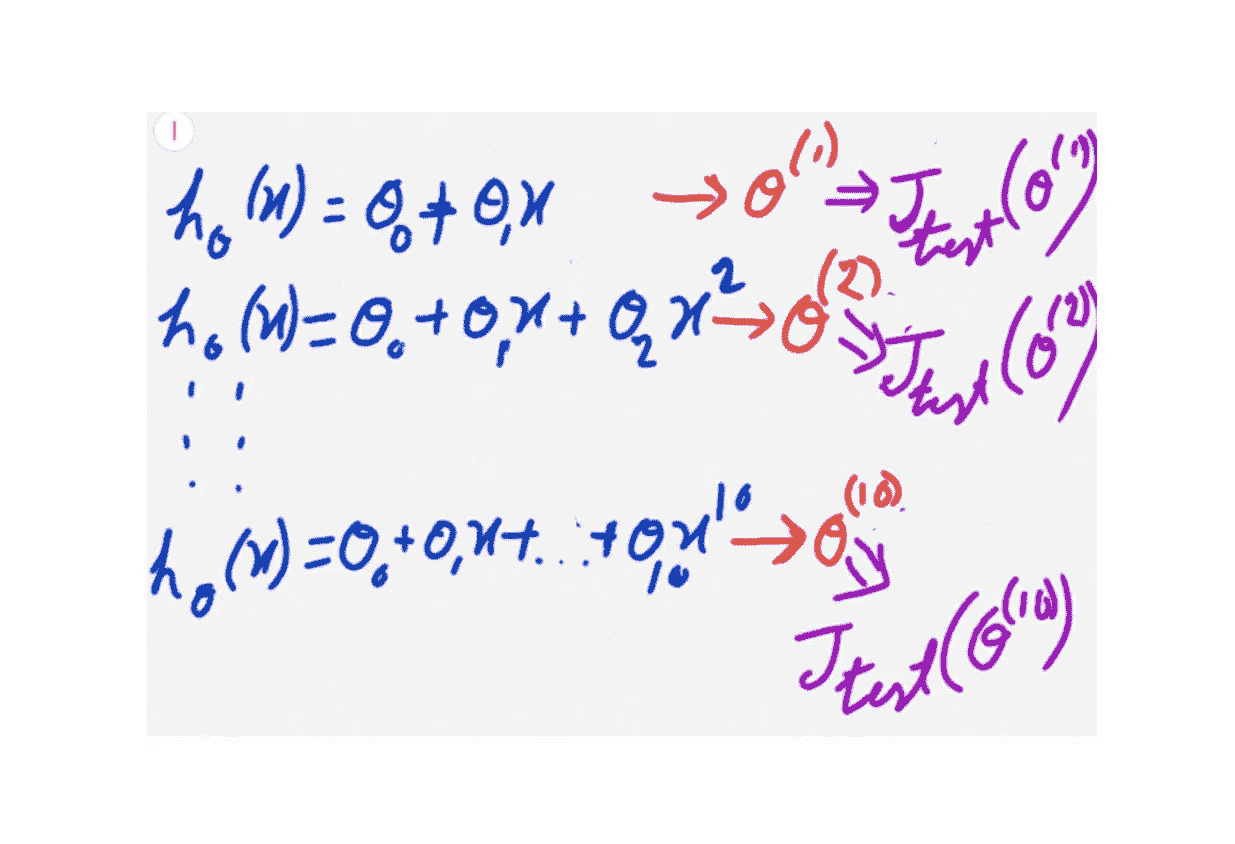 1
h_θ(x) = θ₀ + θ₁x → θ⁽¹⁾ ⇒ J_test(θ⁽¹⁾)
h_θ(x) = θ₀ + θ₁x + θ₂x² → θ⁽²⁾ ⇒ J_test(θ⁽²⁾)
⋮ ⋮
h_θ(x) = θ₀ + θ₁x + ... + θ₁₀x¹⁰ → θ⁽¹⁰⁾ ⇒
J_test(θ⁽¹⁰⁾)